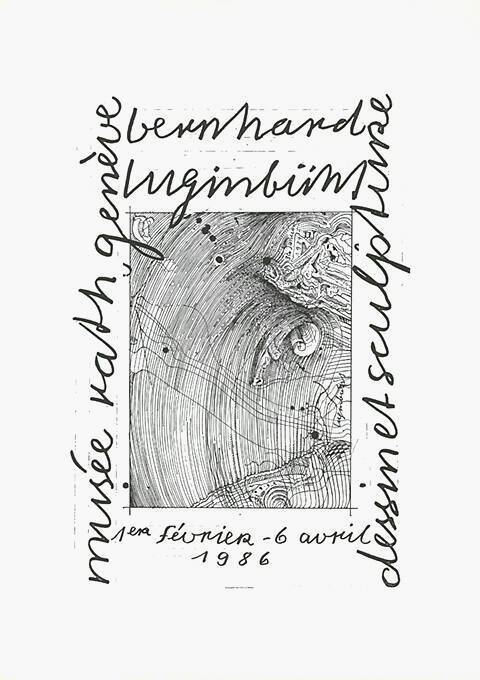 bernhard
luginbühl
musée rath, genève
dessin et sculpture
1er février - 6 avril
1986